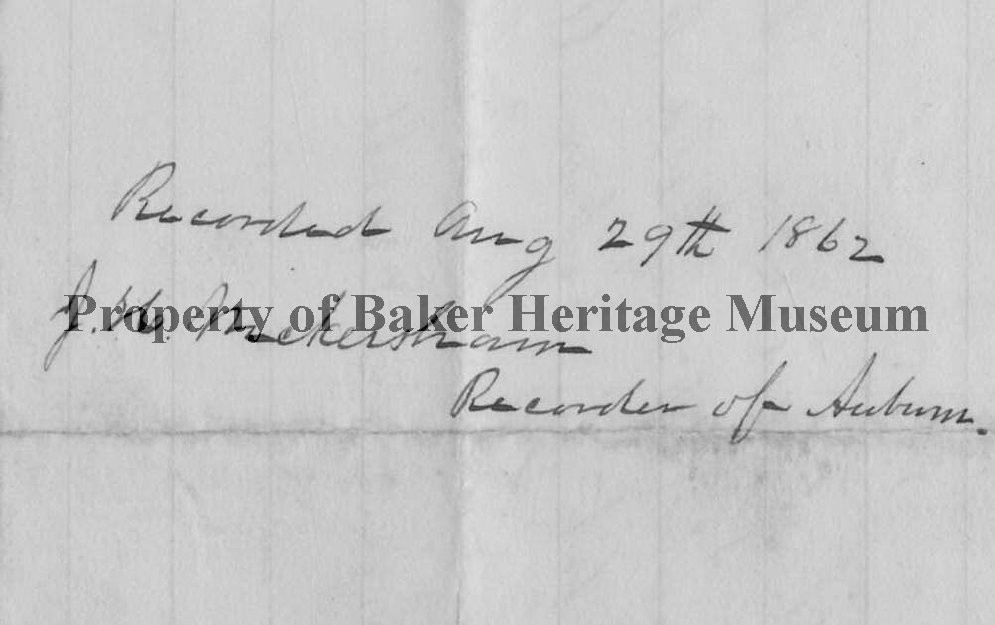 Recorded Aug 29th 1862
Property of Baker Heritage Museum
J. W. Wickersham
Recorder of Auburn.